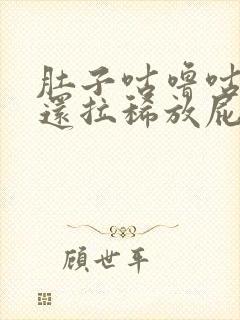 肚子咕嚕咕
還拉稀放屁
顧世平